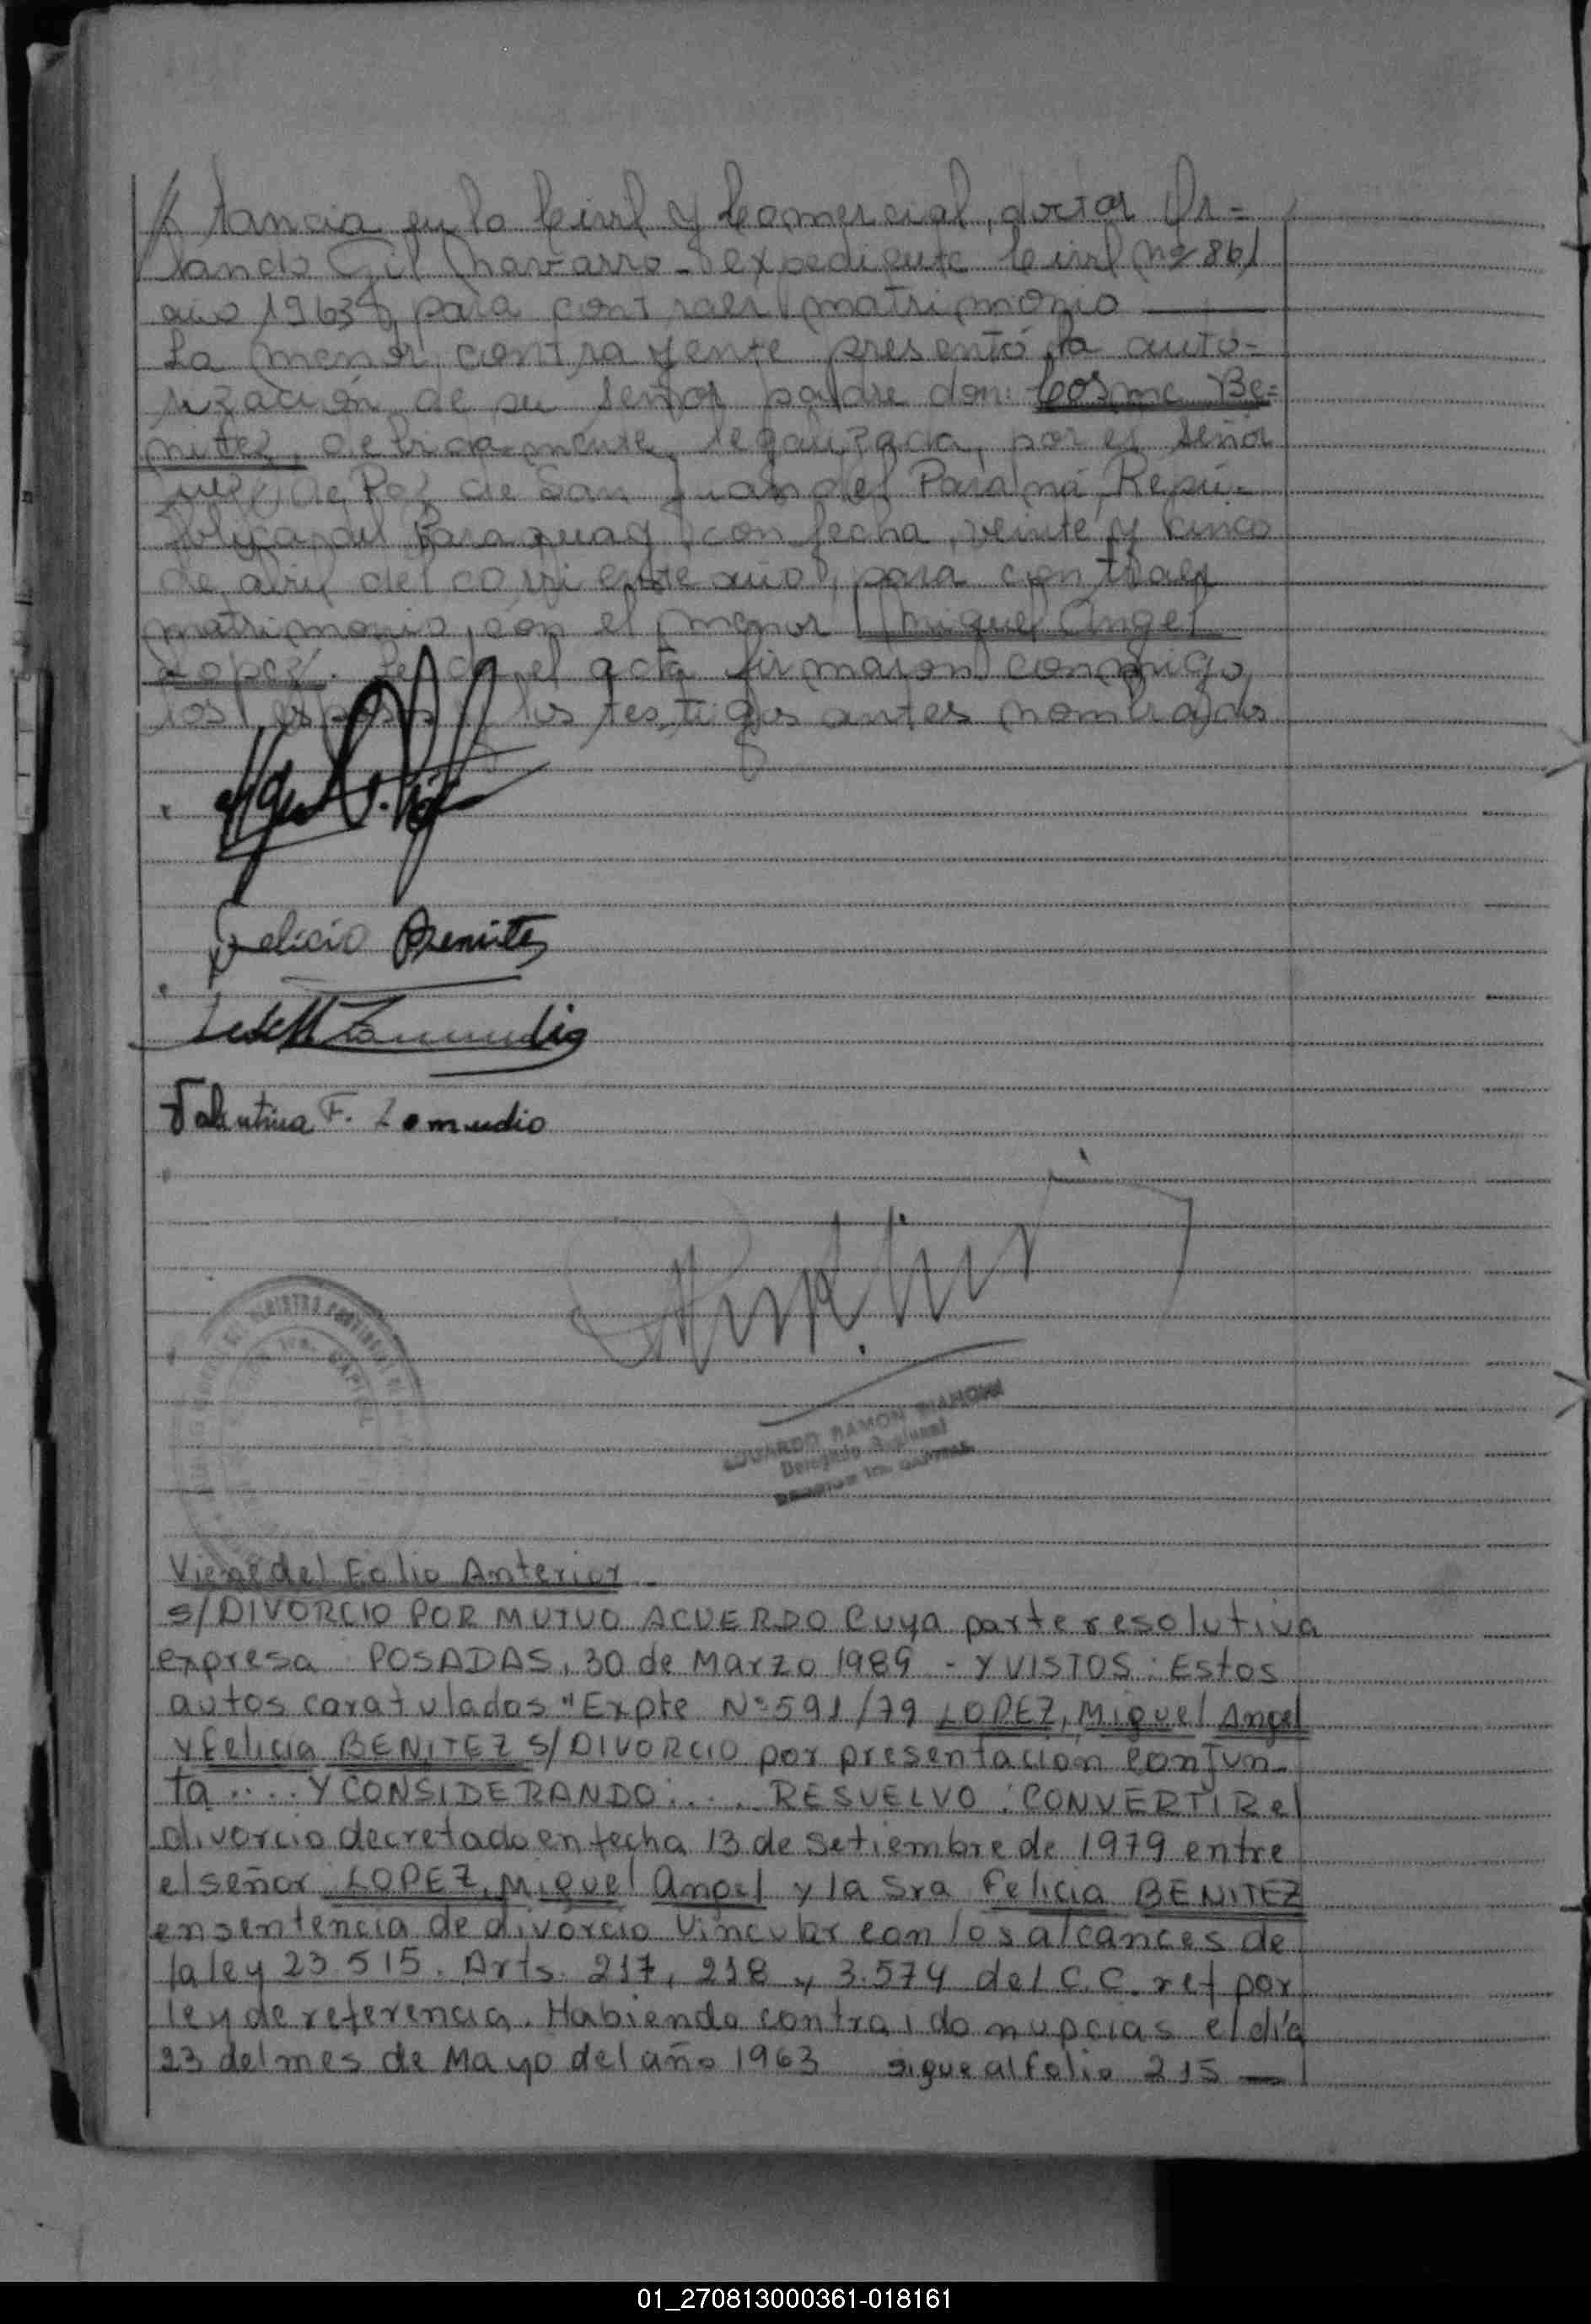 tancia en lo Civil y Comercial, doctor Or-
lando Gil Navarro - expediente Civil Nº 861
año 1963 para contraer matrimonio
La menor contrayente presentó la auto-
rización de su señor padre don: Cosme Be-
nitez, debidamente legalizada, por el señor
Juez de Paz de San Juan del Paraná, Repú-
blica del Paraguay con fecha veinte y cinco
de abril del corriente año, para contraer
matrimonio, con el menor Miguel Angel
Lopez. el acta firmaron conmigo
los esposos y los testigos antes nombrados
Felicia Benitez
Zamudio
Valentina F. Zamudio
EDUARDO RAMON
Delegado
Viene del Folio Anterior
S/DIVORCIO POR MUTUO ACUERDO Cuya parte resolutiva
expresa: POSADAS, 30 de Marzo 1989 - Y VISTOS: Estos
autos caratulados "Expte Nº 591/79 LOPEZ, Miguel Angel
y Felicia BENITEZ S/DIVORCIO por presentacion conjun-
ta .... Y CONSIDERANDO: .... RESUELVO: CONVERTIR el
divorcio decretado en fecha 13 de Setiembre de 1979 entre
el señor LOPEZ, Miguel Angel y la Sra Felicia BENITEZ
en sentencia de divorcio Vincular con los alcances de
la ley 23.515. Arts. 217, 218 y 3.574 del C.C. ref por
ley de referencia. Habiendo contraido nupcias el día
23 del mes de Mayo del año 1963 sigue al folio 215
01_270813000361-018161